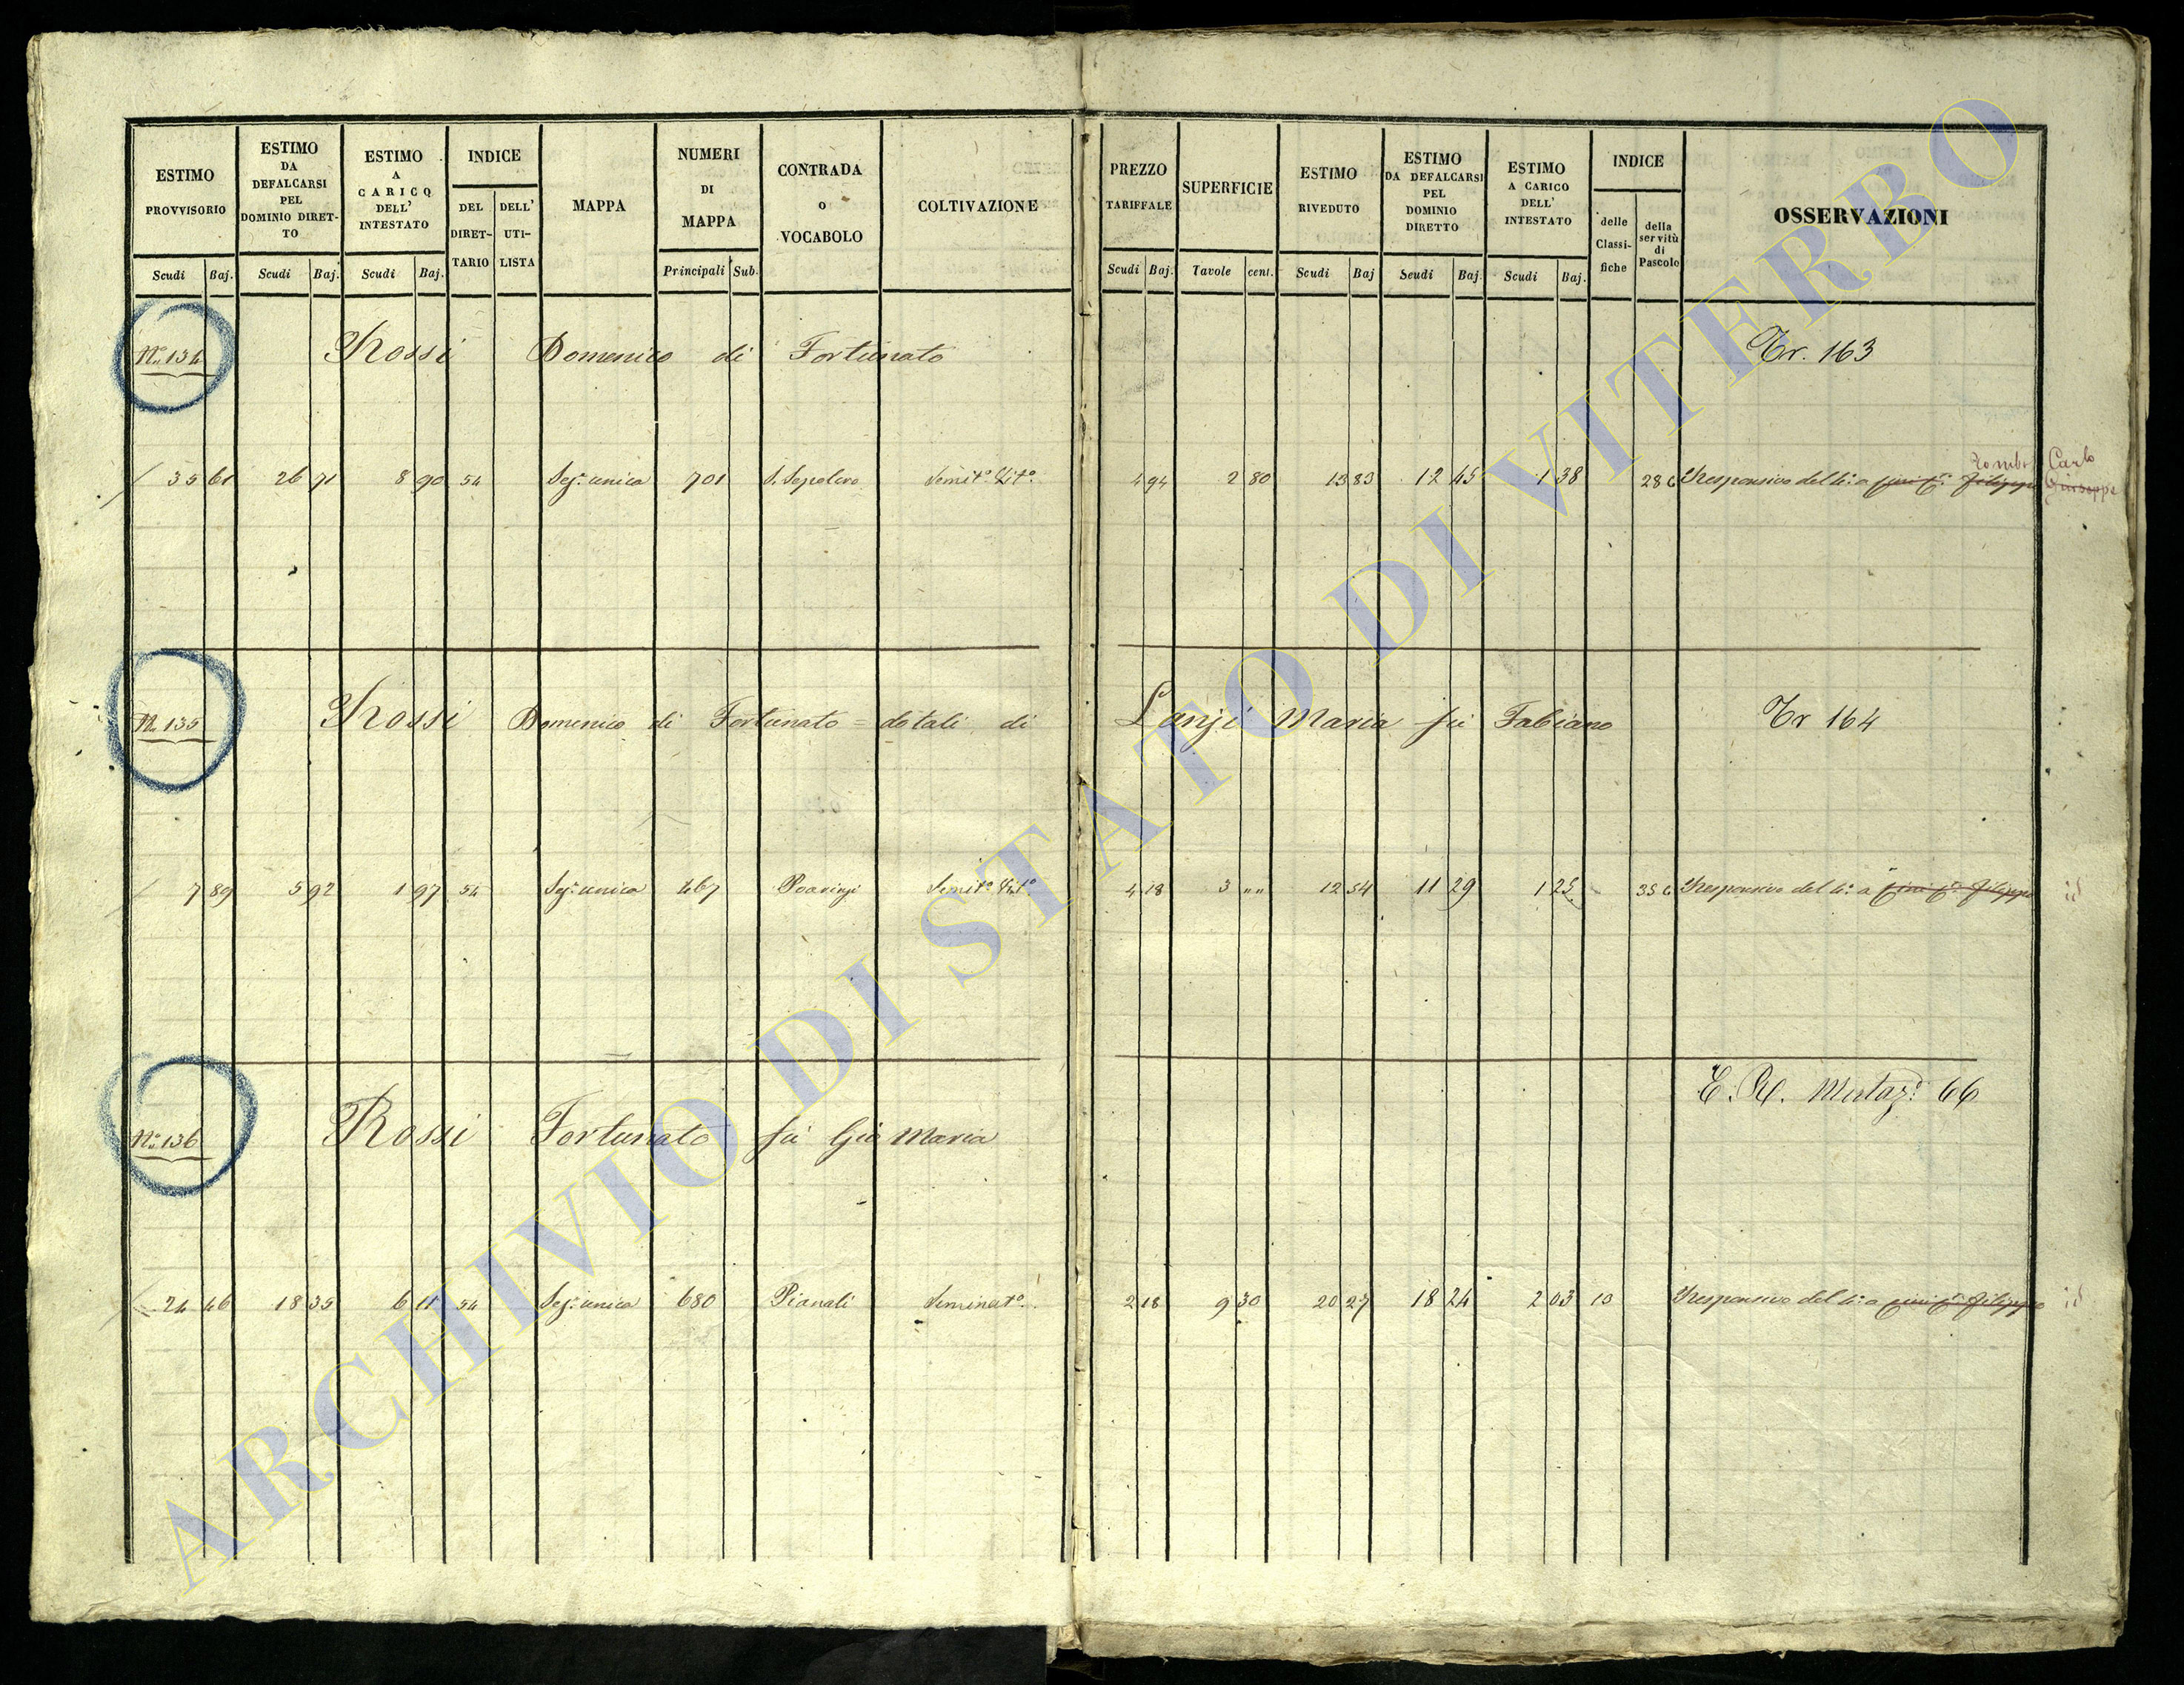 ESTIMO PROVVISORIO ESTIMO DA DEFALCARSI PEL DOMINIO DIRET-TO ESTIMO A CARICO DELL' INTESTATO INDICE DEL DIRET-TARIO DELL' UTI-LISTA MAPPA NUMERI DI MAPPA CONTRADA o VOCABOLO COLTIVAZIONE PREZZO TARIFFALE SUPERFICIE ESTIMO RIVEDUTO ESTIMO DA DEFALCARSI PEL DOMINIO DIRETTO ESTIMO A CARICO DELL' INTESTATO INDICE delle Classi-fiche della servitù di Pascolo OSSERVAZIONI
Scudi Baj. Scudi Baj. Scudi Baj. Principali Sub. Scudi Baj. Tavole cent. Scudi Baj Scudi Baj. Scudi Baj.
No. 134 Rossi Domenico di Fortunato Tr. 163
Carlo
35 61 26 71 8 90 54 Sez.e unica 701 S. Sepolcro Semit.o Vit.o 4 94 2 80 13 83 12 45 1 38 28 c Responsivo del 4.o a Giuseppe
No. 135 Rossi Domenico di Fortunato = dotali di Lanzi Maria fu Fabiano Tr 164
7 89 5 92 1 97 54 Sez.e unica 467 Semit.o Vit.o 4 18 3 " " 12 54 11 29 1 25 35 c Responsivo del 4.o a id
E. R. 66
No. 136 Rossi Fortunato fu Gio Maria
24 46 18 35 6 11 54 Sez.e unica 680 Pianali Seminat.o 2 18 9 30 20 27 18 24 2 03 10 Responsivo del 4.o a id
ARCHIVIO DI STATO DI VITERBO